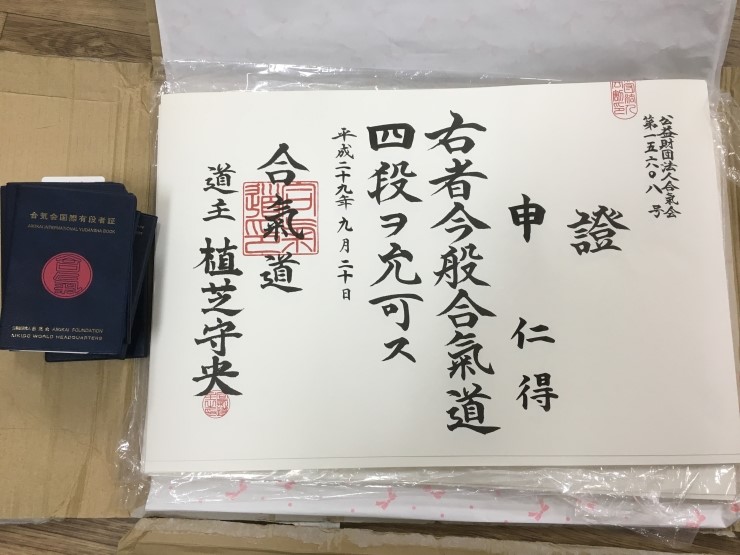 公益財団法人合氣会
第一五六〇八号
證
申 仁得
右者今般合氣道
四段ヲ允可ス
平成二十九年九月二十日
合氣道
道主 植芝守央
合気会国際有段者証
AIKIKAI INTERNATIONAL YUDANSHA BOOK
合気会 AIKIKAI FOUNDATION
AIKIDO WORLD HEADQUARTERS